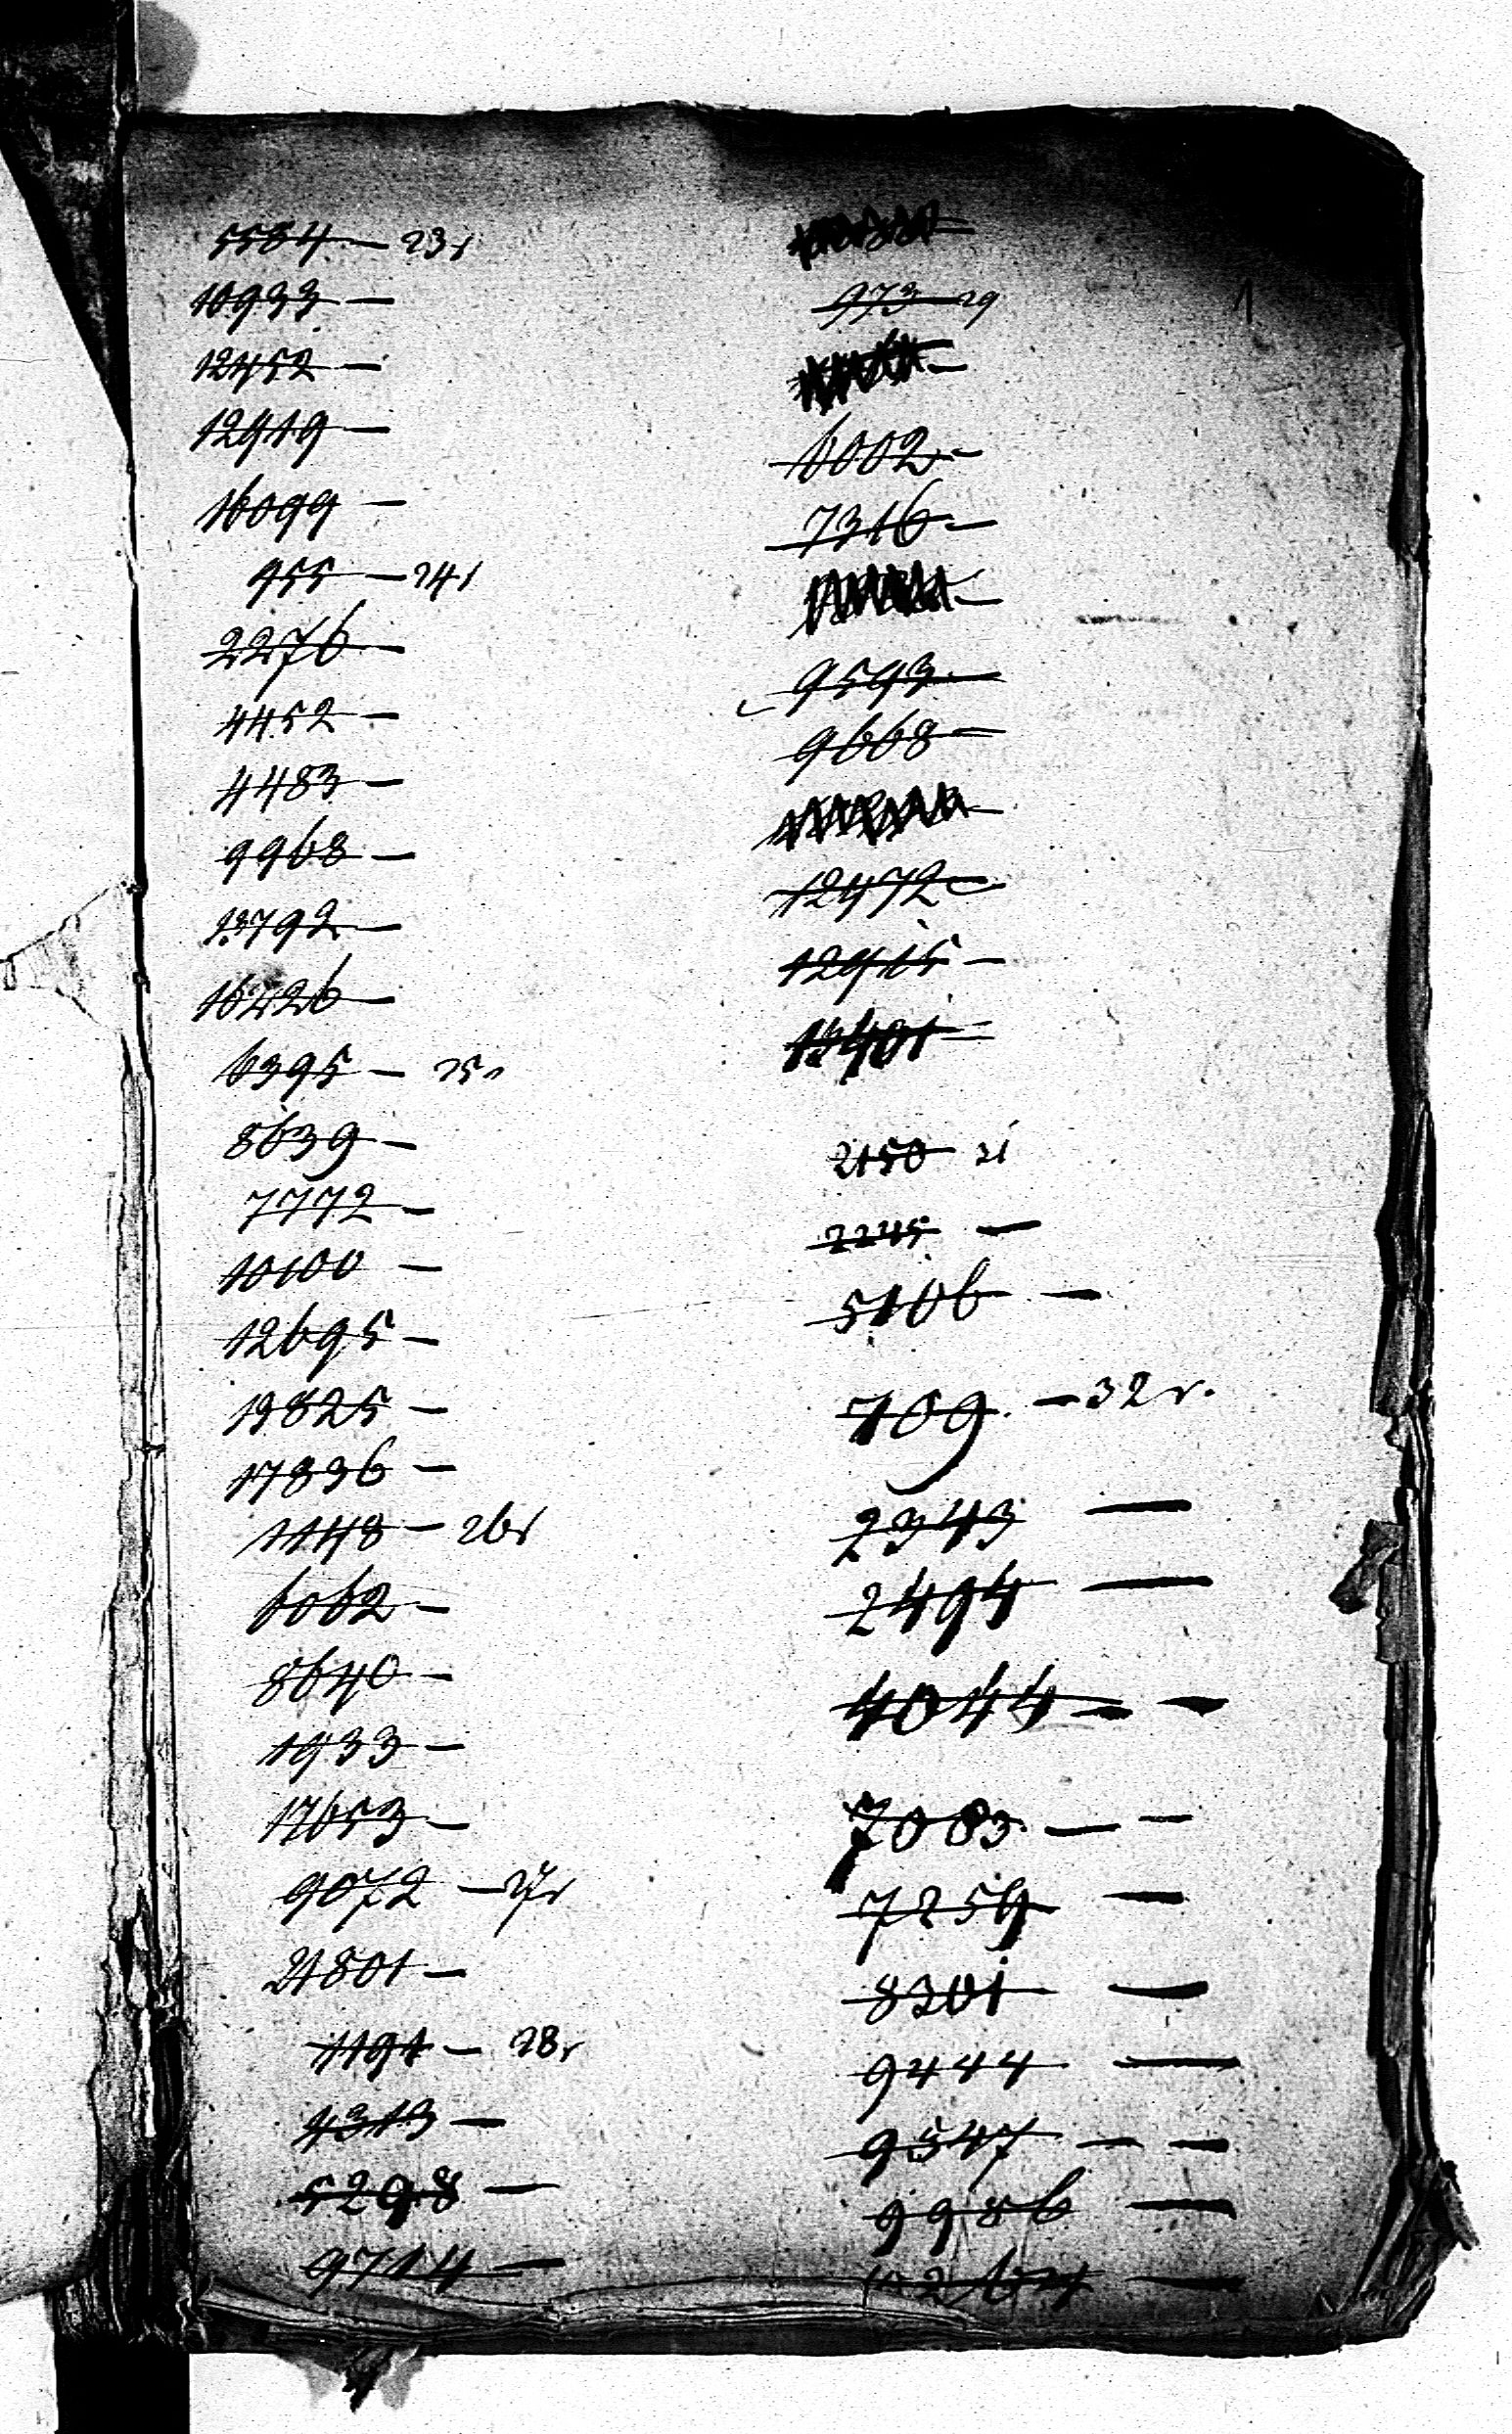 5584 — 23r
10933 —
12452 —
12919 —
16099 —
955 — 24r
2276 —
4452 —
4483 —
9968 —
13792 —
16426 —
6395 — 25r
8639 —
7772 —
10100 —
12695 —
19825 —
17836 —
1148 — 26r
6062 —
8640 —
1933 —
17653 —
9072 — 27r
21801 —
1191 — 28r
4313 —
5298 —
9714 —
1
973 — 29
6002 —
7316 —
9593 —
9668 —
12472 —
12915 —
13401 —
2150 31
2245 —
5106 —
709 — 32 r.
2343 —
2494 —
4044 — —
7083 — —
7259 —
8301 —
9444 —
9547 — —
9986 —